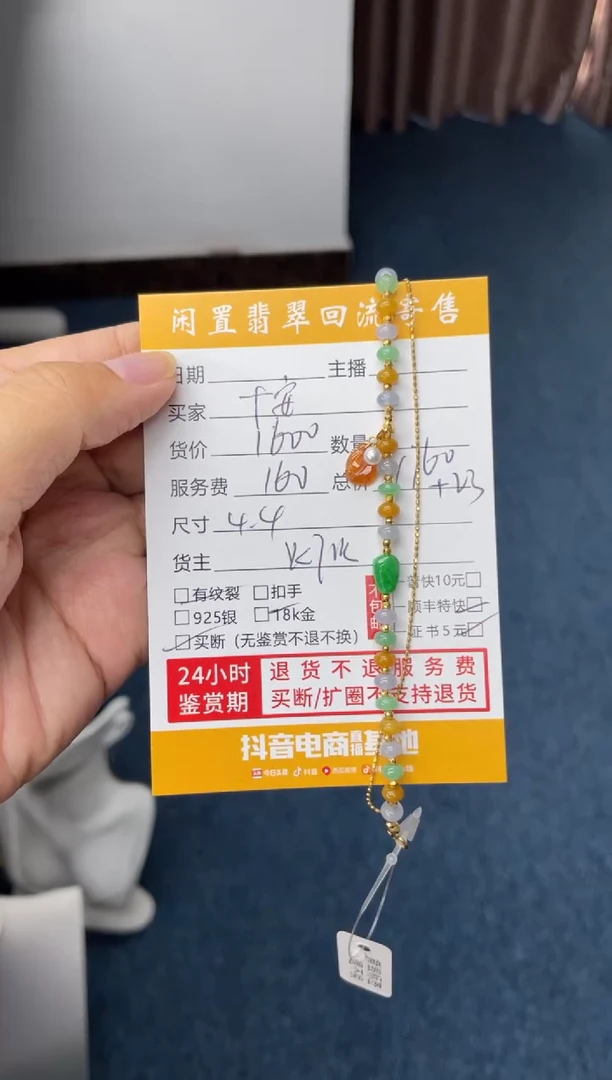 闲置翡翠回流寄售
日期 主播
买家 十安
货价 1600 数量
服务费 160 总价 1760
+23
尺寸 4.4
货主
有纹裂 扣手 普快10元
925银 18k金 顺丰特快
买断 (无鉴赏不退不换) 证书5元
不包邮
24小时 退货不退服务费
鉴赏期 买断/扩圈不支持退货
抖音电商直播基地
今日头条 抖音 西瓜视频